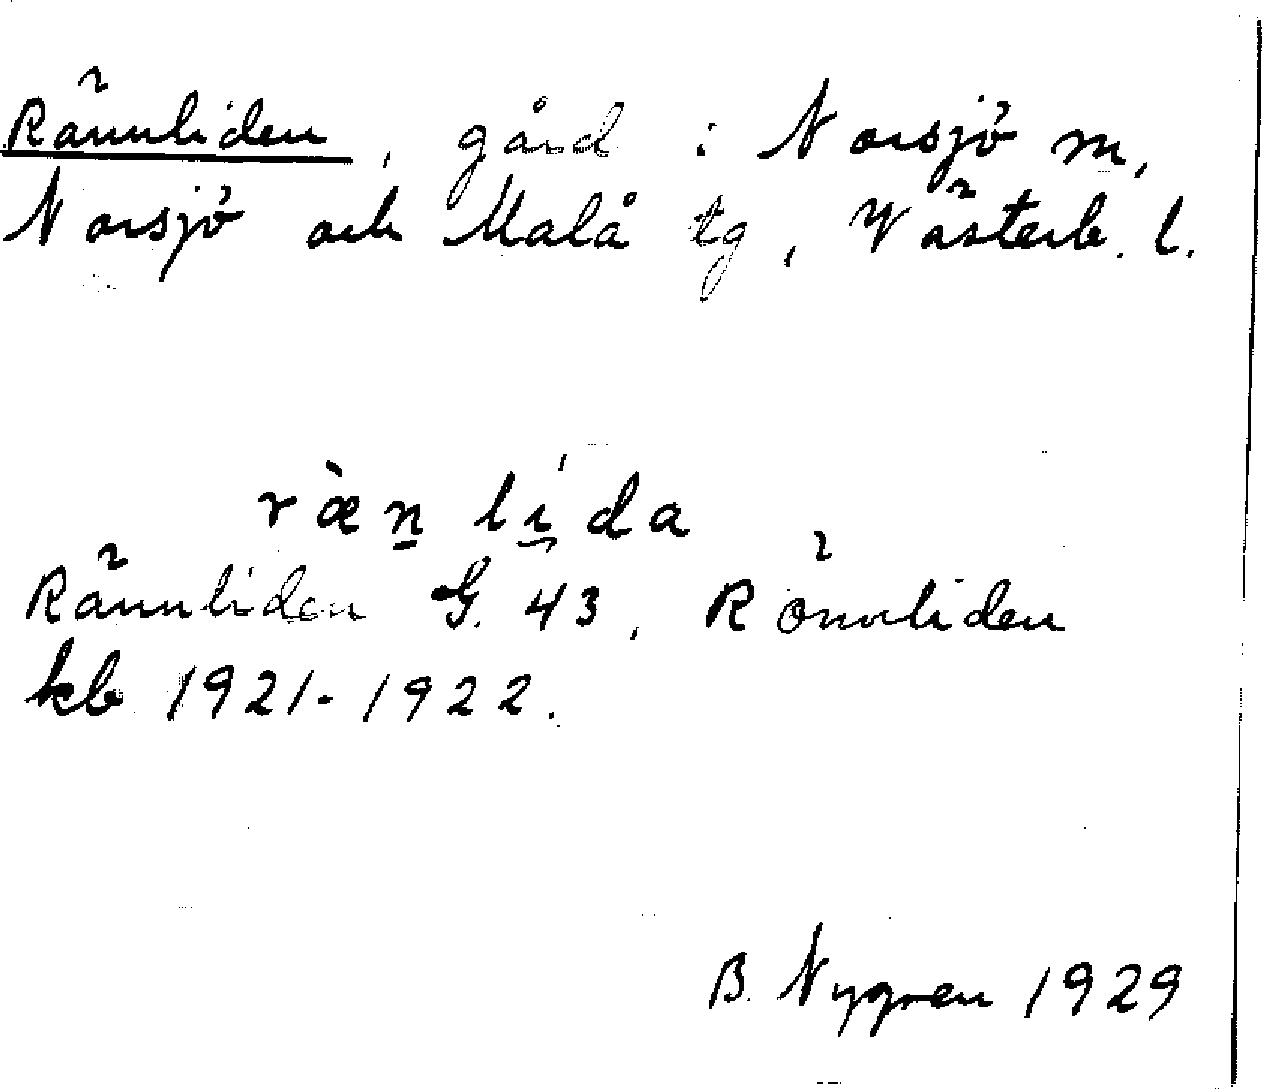 Rännliden, gård i Norsjö sn,
Norsjö och Malå tg, Västerb. l.
ræ̀n lída
Rännliden G. 43, Rönnliden
kb 1921-1922.
B. Nygren 1929